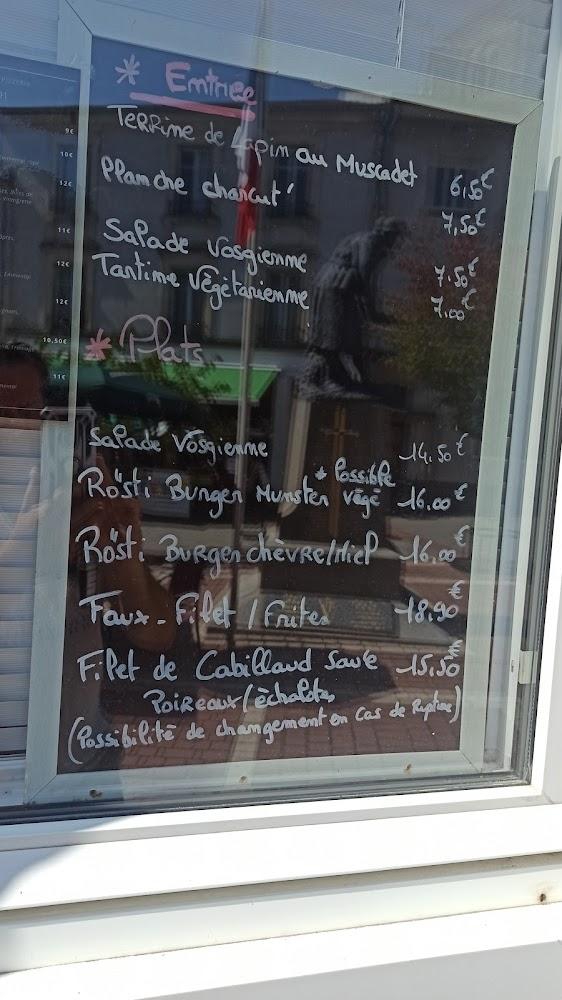 * Entrée
Terrine de Lapin au Muscadet 6,50€
Planche charcut' 7,50€
Salade Vosgienne 7.50€
Tantine Végétarienne 7,00€
* Plats
Salade Vosgienne 14,50€
* Possible
Rösti Burger Munster végé 16,00€
Rösti Burger chèvre/Miel 16,00€
Faux-Filet / Frites 18,90€
Filet de Cabillaud Sauce 15,50€
Poireaux/échalotes
(Possibilité de changement en cas de Rupture)
9€
10€
12€
11€
12€
12€
10,50€
11€